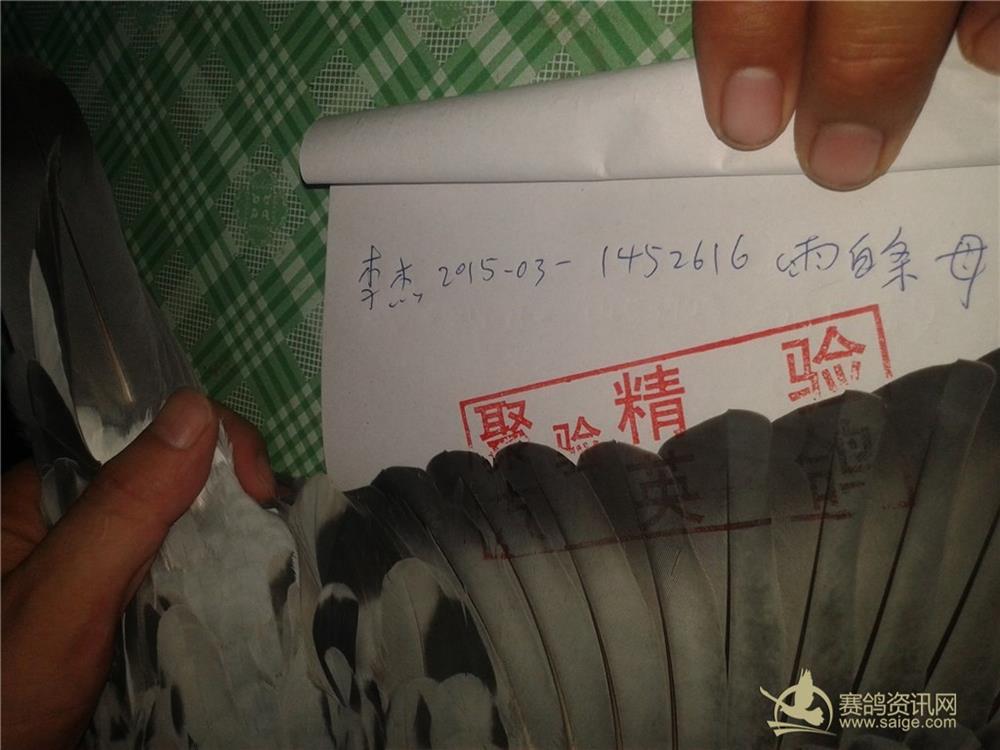 李杰 2015-03-1452616 雨白条 母
聚 精 验
验
英
赛鸽资讯网
www.saige.com